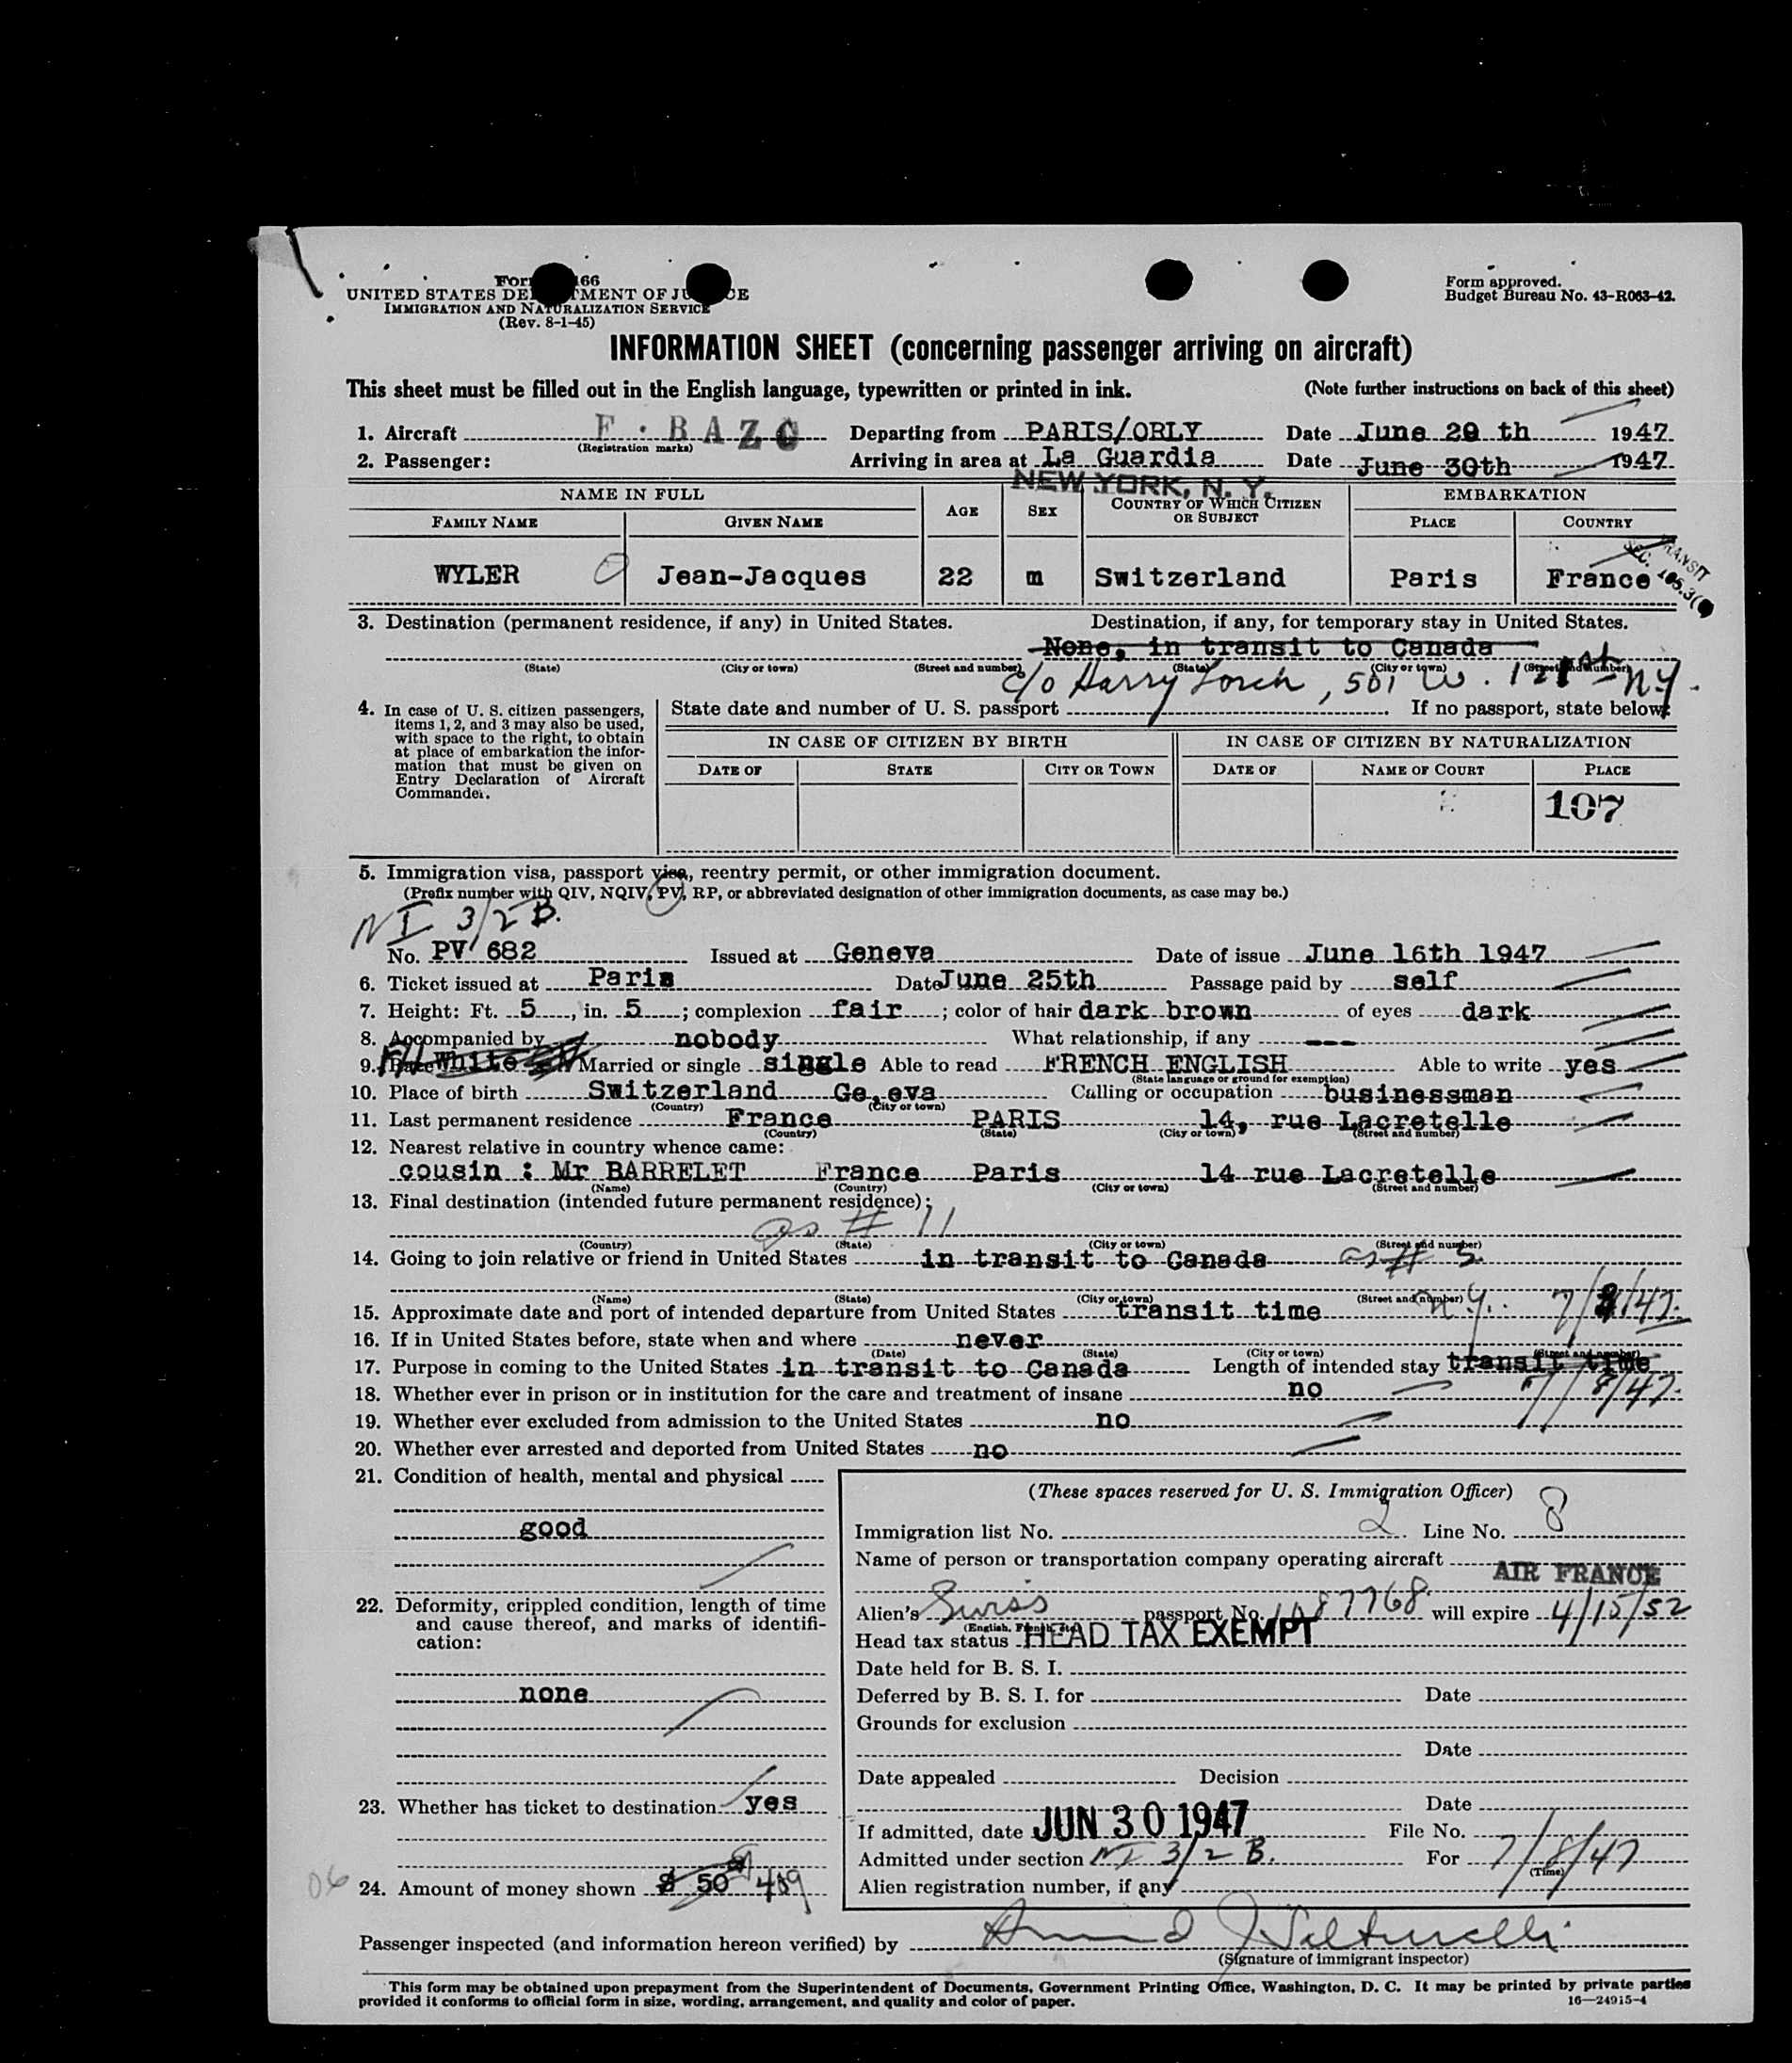 Form 166
UNITED STATES DEPARTMENT OF JUSTICE
IMMIGRATION AND NATURALIZATION SERVICE
(Rev. 8-1-45)
Form approved.
Budget Bureau No. 43-R063-42.
INFORMATION SHEET (concerning passenger arriving on aircraft)
This sheet must be filled out in the English language, typewritten or printed in ink. (Note further instructions on back of this sheet)
1. Aircraft F·BAZC Departing from PARIS/ORLY Date June 29 th 1947
(Registration marks)
2. Passenger: Arriving in area at La Guardia Date June 30th 1947
NEW YORK, N. Y.
NAME IN FULL AGE SEX COUNTRY OF WHICH CITIZEN OR SUBJECT EMBARKATION
FAMILY NAME GIVEN NAME PLACE COUNTRY
WYLER Jean-Jacques 22 m Switzerland Paris France
3. Destination (permanent residence, if any) in United States. Destination, if any, for temporary stay in United States.
None, in transit to Canada
(State) (City or town) (Street and number) (State) (City or town) (Street and number)
c/o Harry , 501 W. 121st N.Y.
4. In case of U. S. citizen passengers, items 1, 2, and 3 may also be used, with space to the right, to obtain at place of embarkation the information that must be given on Entry Declaration of Aircraft Commander.
State date and number of U. S. passport If no passport, state below:
IN CASE OF CITIZEN BY BIRTH IN CASE OF CITIZEN BY NATURALIZATION
DATE OF STATE CITY OR TOWN DATE OF NAME OF COURT PLACE
107
5. Immigration visa, passport visa, reentry permit, or other immigration document.
(Prefix number with QIV, NQIV, PV, RP, or abbreviated designation of other immigration documents, as case may be.)
NI 3/2 B.
No. PV 682 Issued at Geneva Date of issue June 16th 1947
6. Ticket issued at Paris Date June 25th Passage paid by self
7. Height: Ft. 5, in. 5; complexion fair; color of hair dark brown of eyes dark
8. Accompanied by nobody What relationship, if any ---
9. Race White Married or single single Able to read FRENCH ENGLISH Able to write yes
(State language or ground for exemption)
10. Place of birth Switzerland Ge,eva Calling or occupation businessman
(Country) (City or town)
11. Last permanent residence France PARIS 14, rue Lacretelle
(Country) (State) (City or town) (Street and number)
12. Nearest relative in country whence came:
cousin : Mr BARRELET France Paris 14 rue Lacretelle
(Name) (Country) (City or town) (Street and number)
13. Final destination (intended future permanent residence):
as # 11
(Country) (State) (City or town) (Street and number)
14. Going to join relative or friend in United States in transit to Canada as # 3
(Name) (State) (City or town) (Street and number)
15. Approximate date and port of intended departure from United States transit time N.Y. 7/8/47
16. If in United States before, state when and where never
(Date) (State) (City or town) (Street and number)
17. Purpose in coming to the United States in transit to Canada Length of intended stay transit time
18. Whether ever in prison or in institution for the care and treatment of insane no 7/8/47
19. Whether ever excluded from admission to the United States no
20. Whether ever arrested and deported from United States no
21. Condition of health, mental and physical
good
22. Deformity, crippled condition, length of time and cause thereof, and marks of identification:
none
23. Whether has ticket to destination yes
24. Amount of money shown $ 50
06
(These spaces reserved for U. S. Immigration Officer)
Immigration list No. 2 Line No. 8
Name of person or transportation company operating aircraft
AIR FRANCE
Alien's Swiss passport No. 1087768 will expire 4/15/52
(English, French, etc.)
Head tax status HEAD TAX EXEMPT
Date held for B. S. I.
Deferred by B. S. I. for Date
Grounds for exclusion
Date
Date appealed Decision
Date
If admitted, date JUN 30 1947 File No.
Admitted under section NI 3/2 B. For 7/8/47
(Time)
Alien registration number, if any
Passenger inspected (and information hereon verified) by
(Signature of immigrant inspector)
This form may be obtained upon prepayment from the Superintendent of Documents, Government Printing Office, Washington, D. C. It may be printed by private parties
provided it conforms to official form in size, wording, arrangement, and quality and color of paper.
16—24915-4